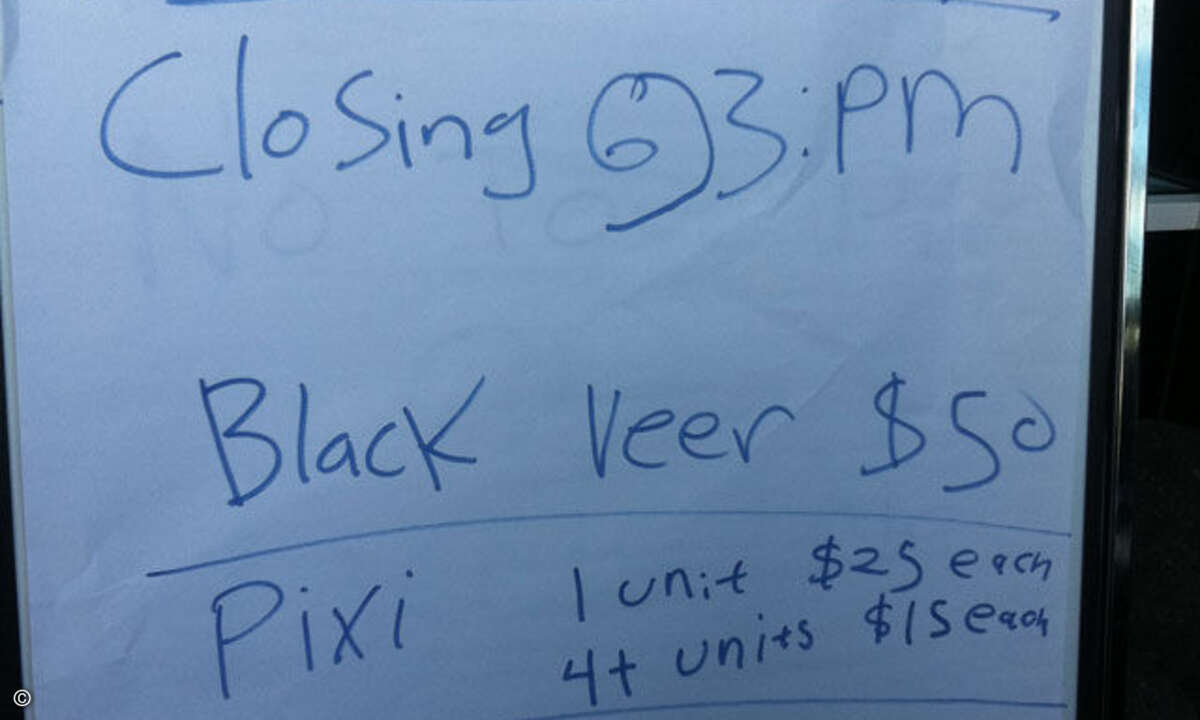 Closing @ 3:PM
Black Veer $50
Pixi 1 unit $25 each
4+ units $15 each
©